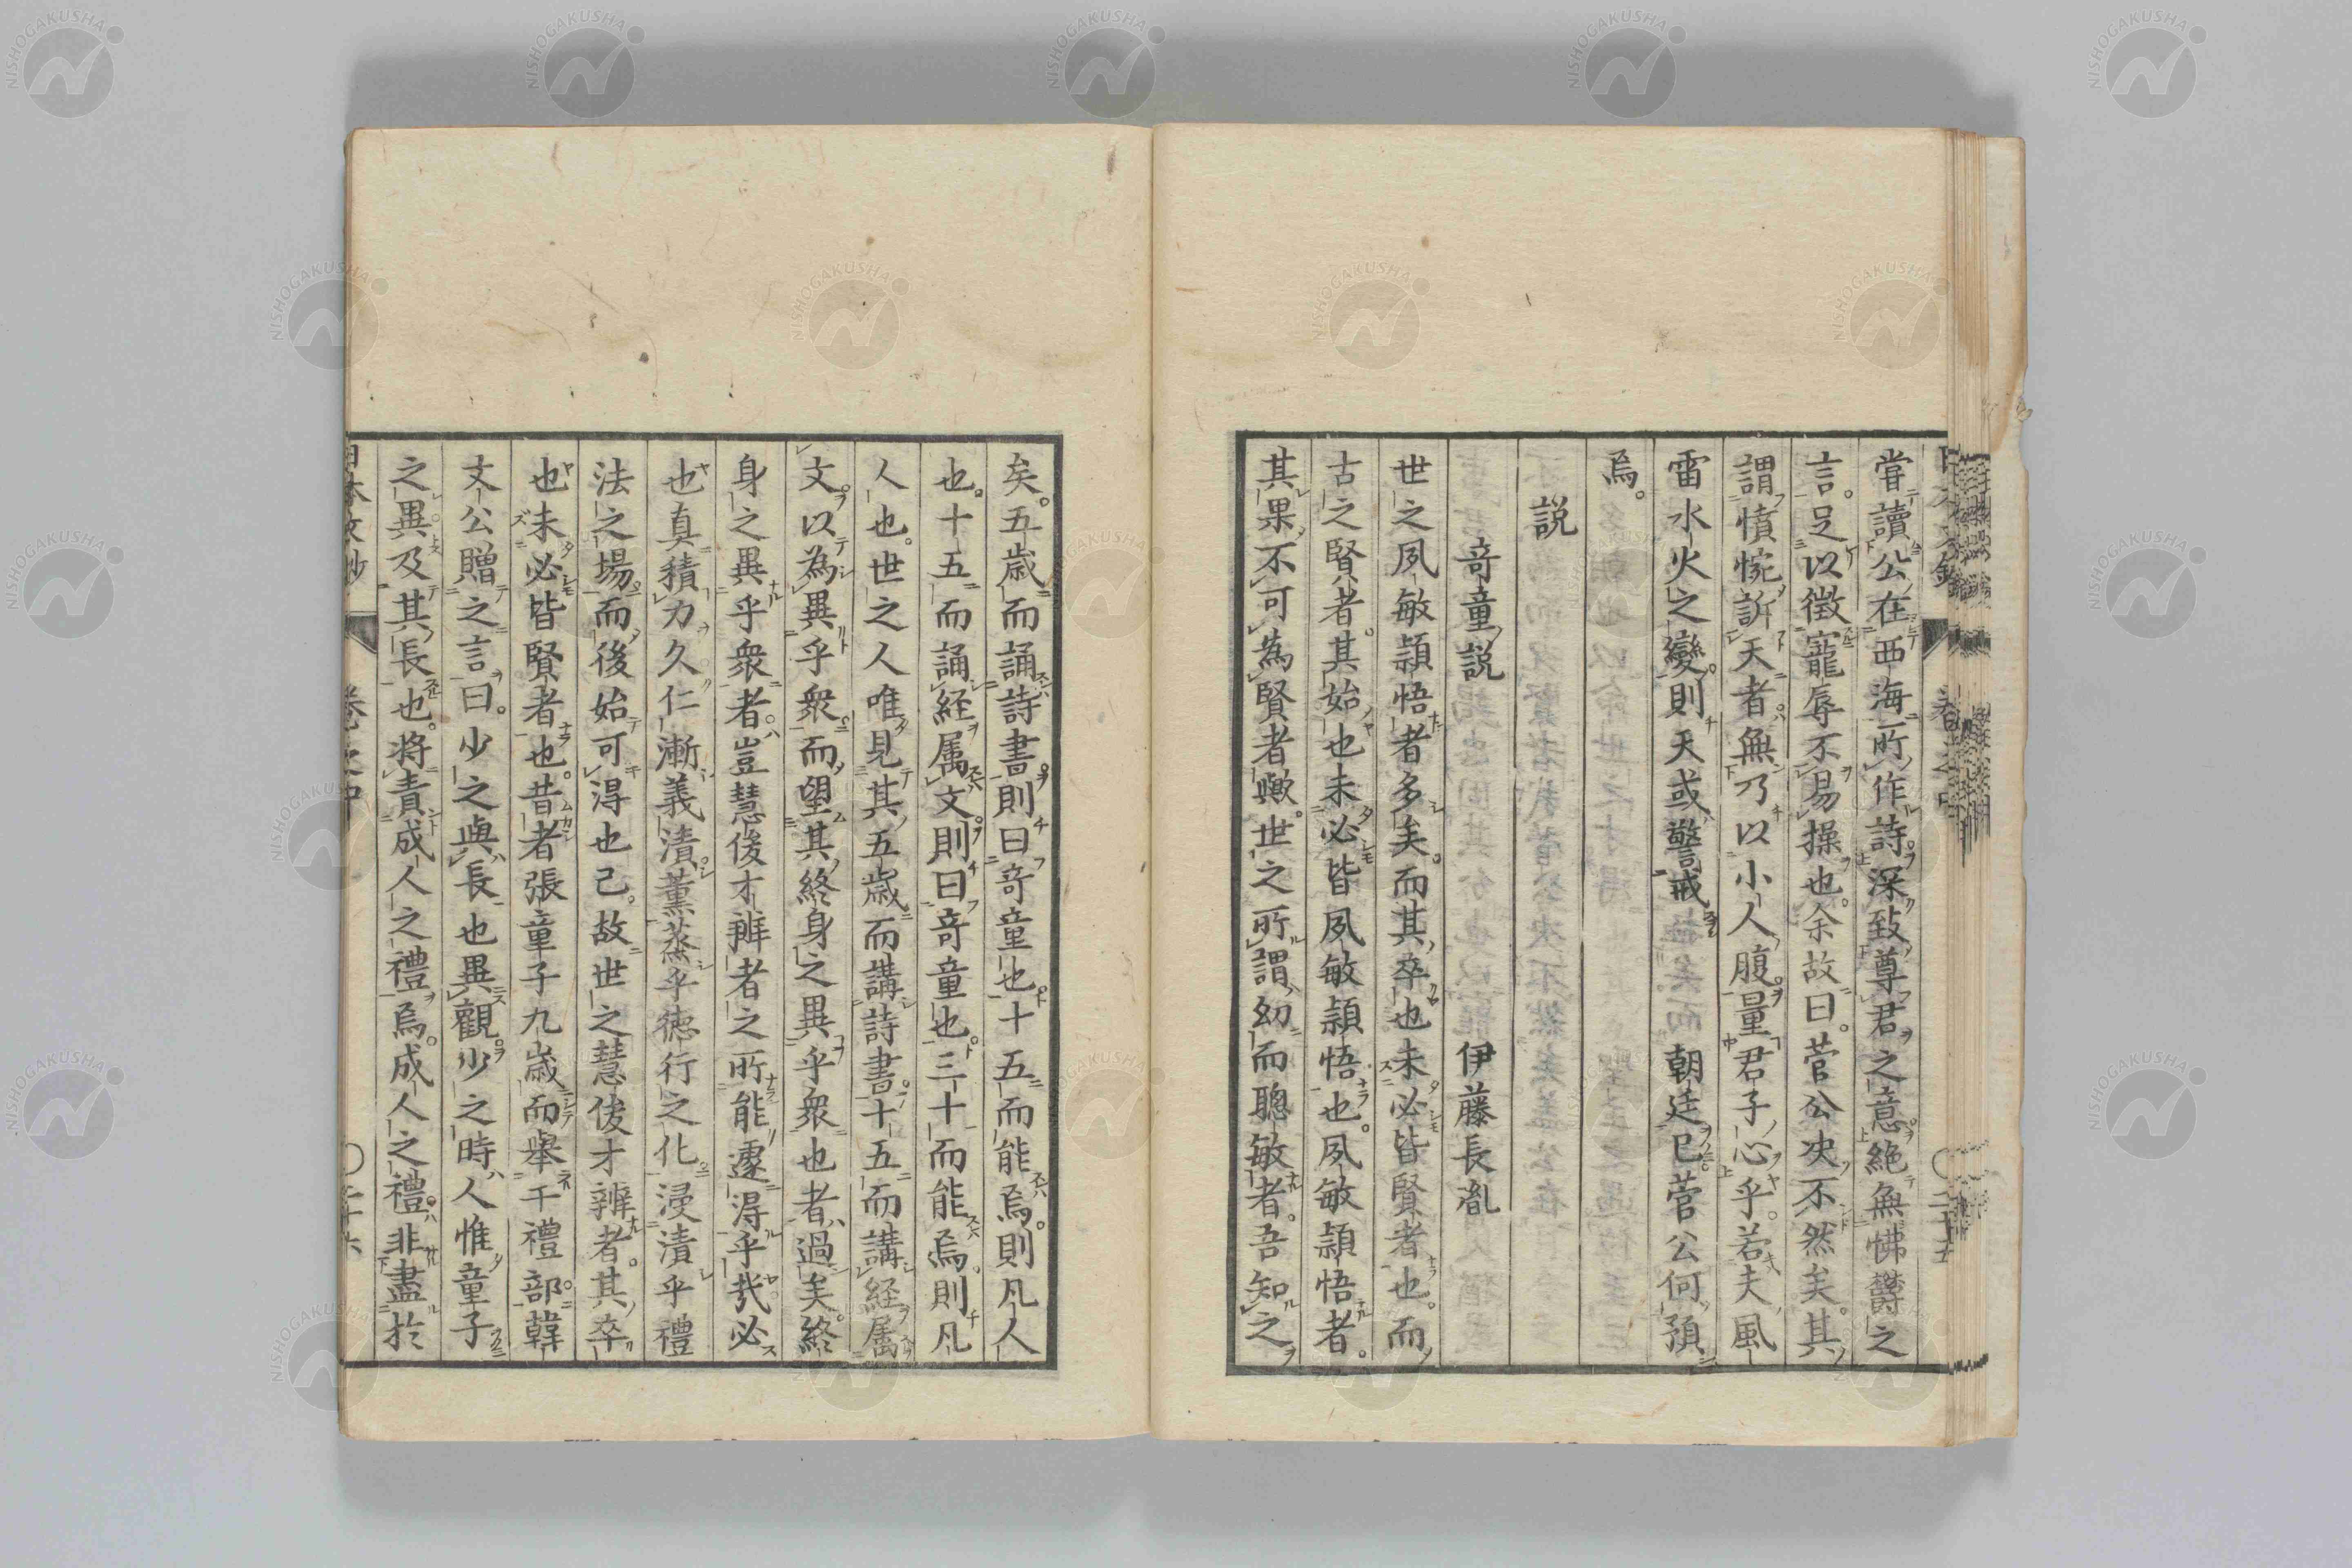 嘗讀公在西海所作詩深致尊君之意絶無怫鬱之
言。足以徴寵辱不易操也。余故曰。菅公决不然矣。其
謂憤惋訴天者無乃以小人腹量君子心乎。若夫風
雷水火之變。則天或警戒 朝廷已。菅公何預
焉。
説
竒童説 伊藤長胤
世之夙敏頴悟者多矣。而其卒也未必皆賢者也。而
古之賢者。其始也未必皆夙敏頴悟也。夙敏頴悟者。
其果不可為賢者歟。世之所謂幼而聰敏者。吾知之
矣。五歳而誦詩書則曰竒童也十五而能焉。則凡人
也。十五而誦経属文則曰竒童也。三十而能焉則凡
人也。世之人唯見其五歳而講詩書。十五而講経属
文。以為異乎衆。而望其終身之異乎衆也者過矣。終
身之異乎衆者。豈慧俊才辨者之所能遽得乎哉必
也真積力久仁漸義漬薫蒸乎徳行之化浸漬乎禮
法之場而後始可得也已。故世之慧俊才辨者。其卒
也未必皆賢者也。昔者張童子九歳而舉于禮部。韓
文公贈之言曰。少之與長也異觀。少之時人惟童子
之異。及其長也。將責成人之禮焉。成人之禮。非盡於
日本文抄 卷之中 〇二十六
NISHOGAKUSHA